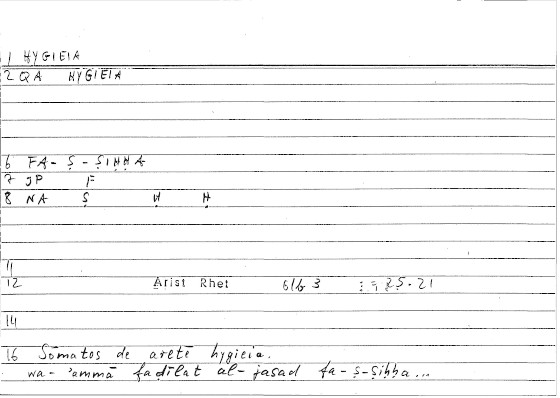 1 HYGIEIA
2 QA HYGIEIA
6 FA-Ṣ-ṢIḤḤA
7 JP F
8 NA Ṣ Ḥ Ḥ
11
12 Arist Rhet 61b3 = 25.21
14
16 Sōmatos de aretē hygieia.
wa-'ammā faḍīlat al-jasad fa-ṣ-ṣiḥḥa...